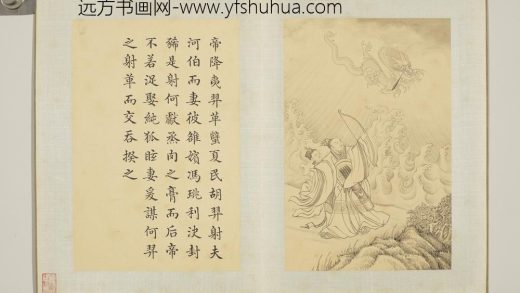 远方书画网-www.yfshuhua.com
帝降夷羿革孽夏民胡羿射夫
河伯而妻彼雒嬪馮珧利決封
豨是射何獻蒸肉之膏而后帝
不若浞娶純狐眩妻爰謀何羿
之射革而交吞揆之